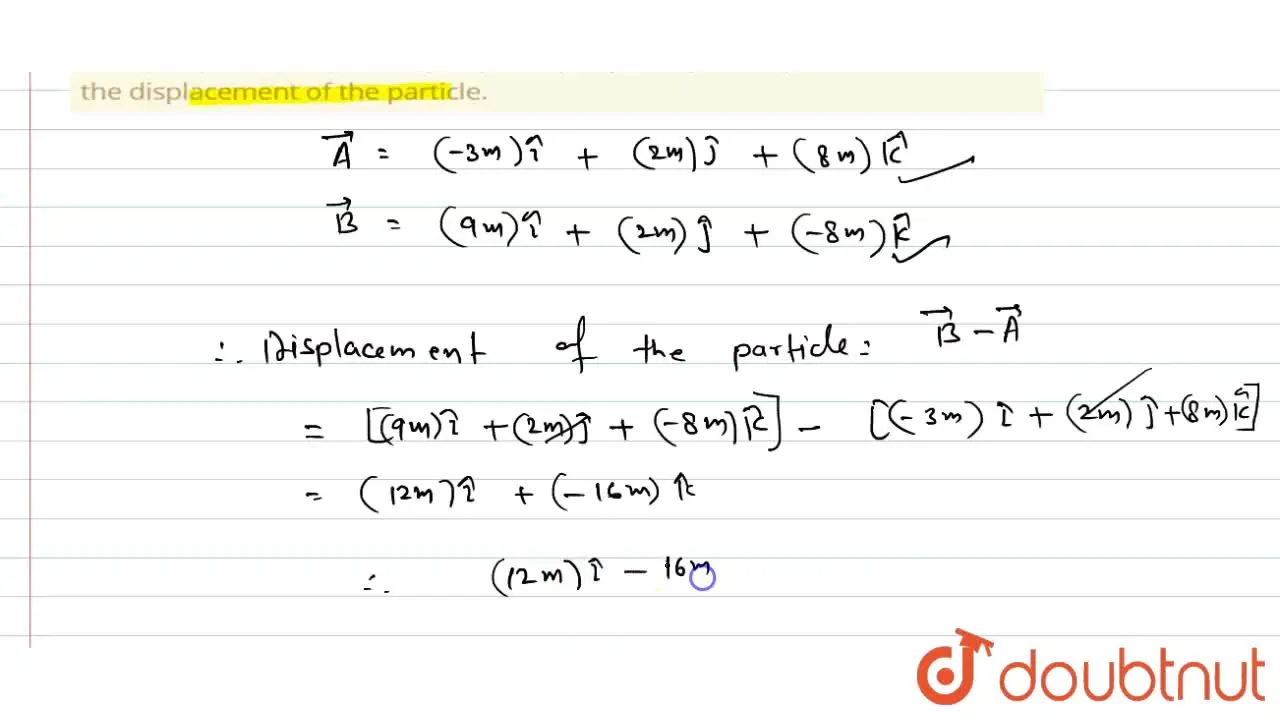 the displacement of the particle.
A⃗ = (-3m)î + (2m)ĵ + (8m)k̂
B⃗ = (9m)î + (2m)ĵ + (-8m)k̂
∴ Displacement of the particle = B⃗ - A⃗
= [(9m)î + (2m)ĵ + (-8m)k̂] - [(-3m)î + (2m)ĵ + (8m)k̂]
= (12m)î + (-16m)k̂
∴ (12m)î - 16m
doubtnut